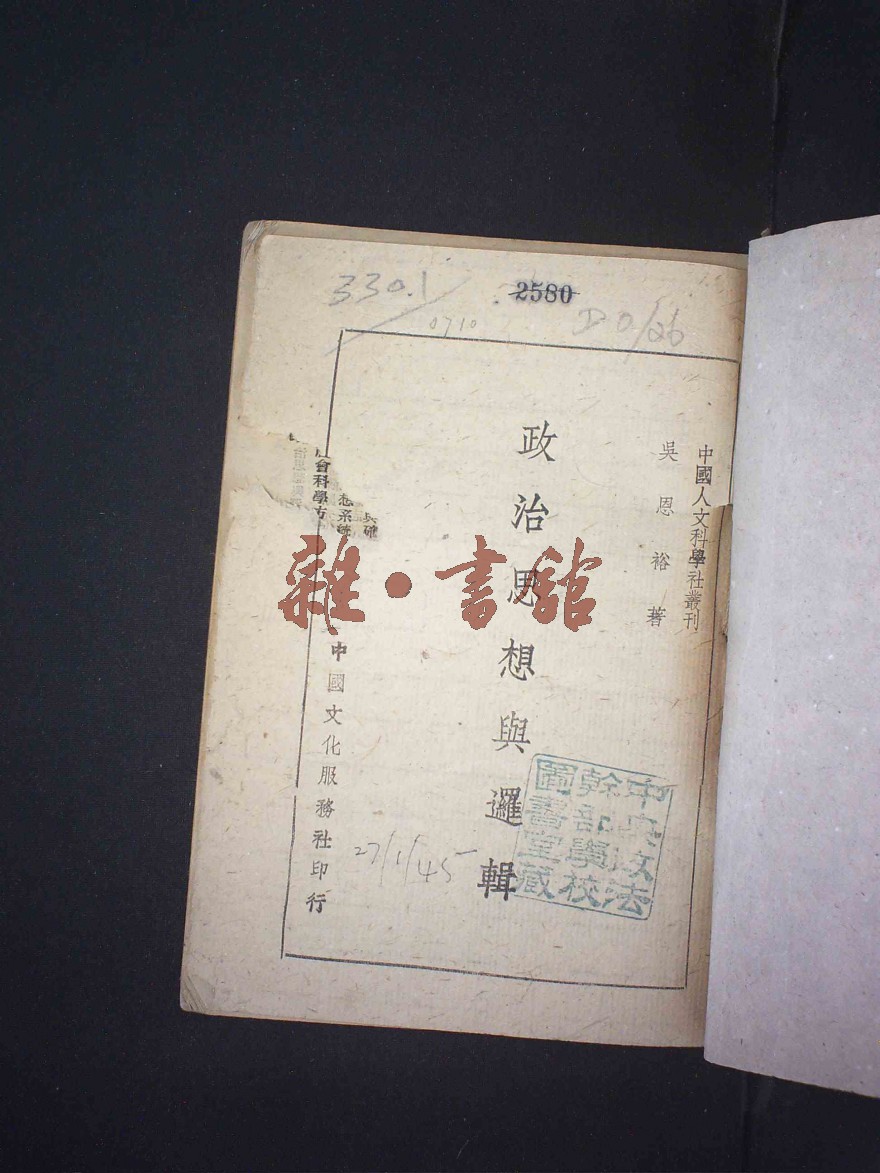 330.1
2580
0710
D0/26
中國人文科學社叢刊
吳恩裕著
政治思想與邏輯
中國文化服務社印行
會科學方
想系統
27/1/45
中央政法
幹部學校
圖書室藏
雜·書館